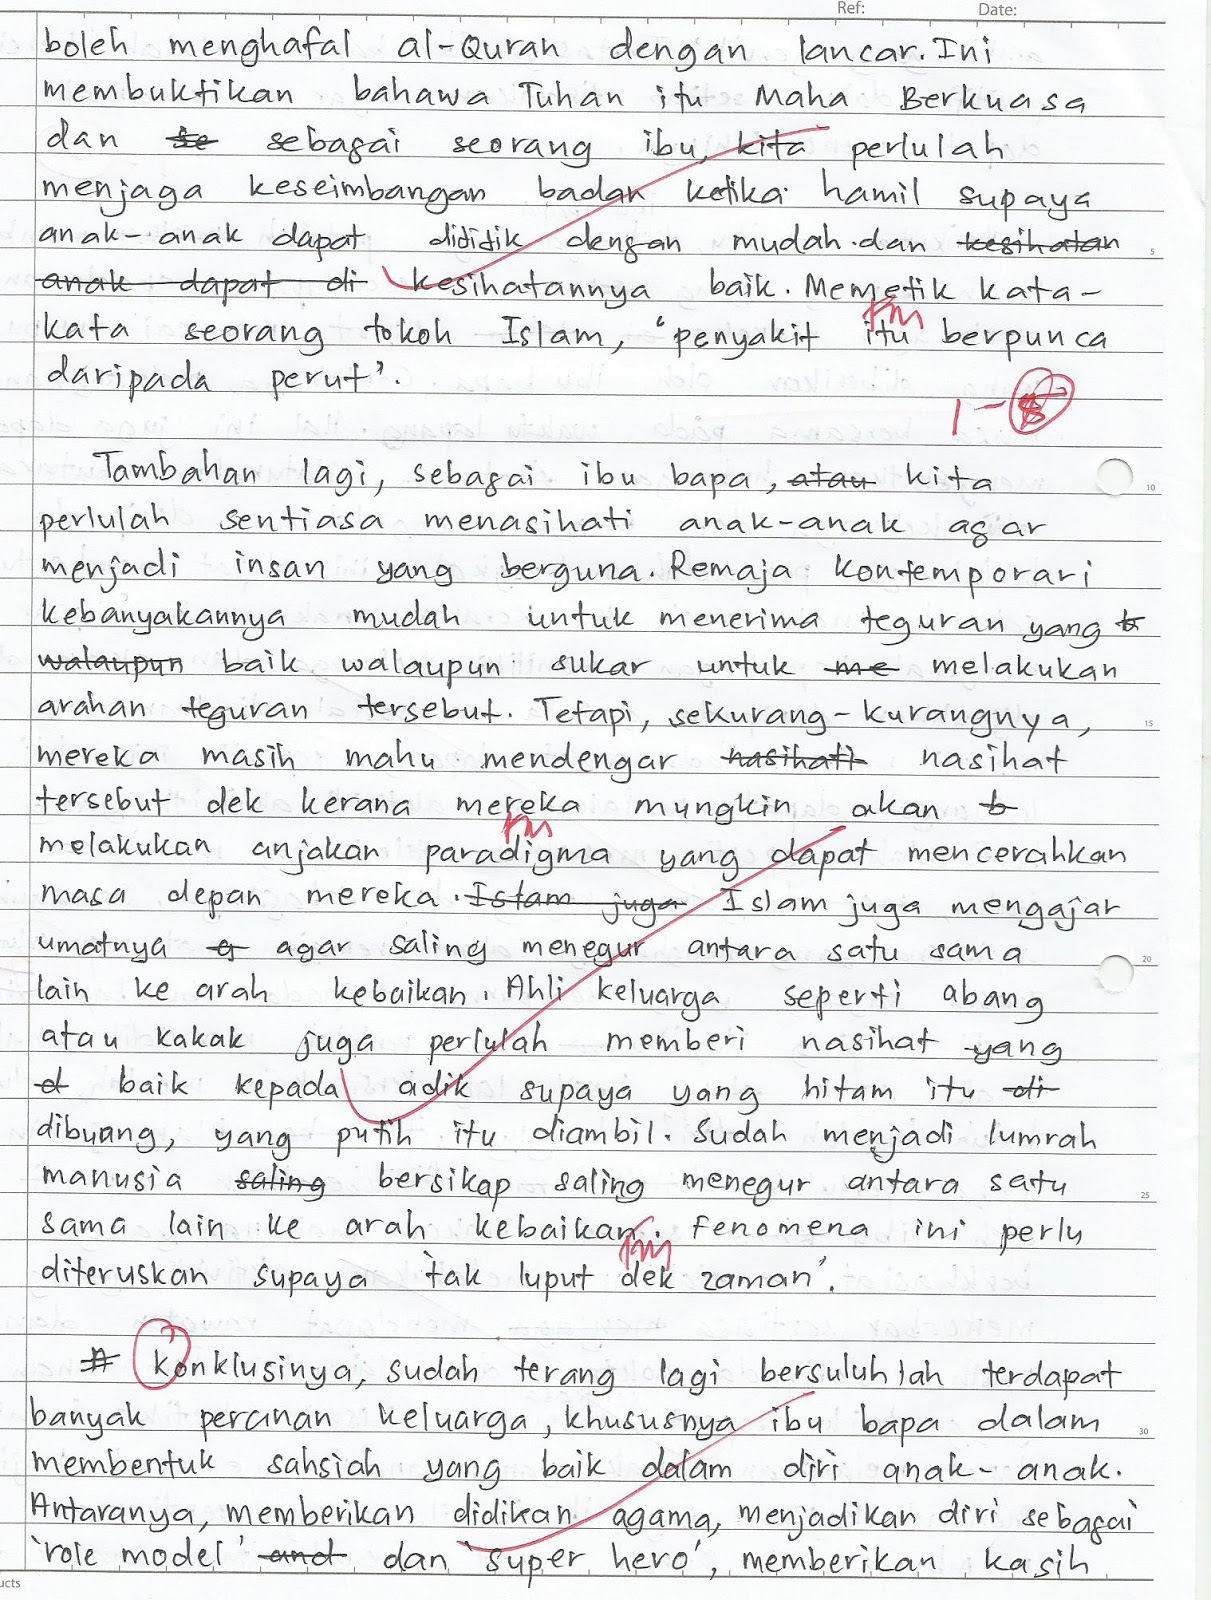 Ref: Date:
boleh menghafal al-Quran dengan lancar. Ini
membuktikan bahawa Tuhan itu Maha Berkuasa
dan se sebagai seorang ibu, kita perlulah
menjaga keseimbangan badan ketika hamil supaya
anak-anak dapat dididik dengan mudah dan kesihatan
anak dapat di kesihatannya baik. Memetik kata-
kata seorang tokoh Islam, 'penyakit itu berpunca
daripada perut'.
Tambahan lagi, sebagai ibu bapa, atau kita
perlulah sentiasa menasihati anak-anak agar
menjadi insan yang berguna. Remaja kontemporari
kebanyakannya mudah untuk menerima teguran yang b
walaupun baik walaupun sukar untuk me melakukan
arahan teguran tersebut. Tetapi, sekurang-kurangnya,
mereka masih mahu mendengar nasihati nasihat
tersebut dek kerana mereka mungkin akan b
melakukan anjakan paradigma yang dapat mencerahkan
masa depan mereka. Islam juga Islam juga mengajar
umatnya a agar saling menegur antara satu sama
lain ke arah kebaikan. Ahli keluarga seperti abang
atau kakak juga perlulah memberi nasihat yang
d baik kepada adik supaya yang hitam itu di
dibuang, yang putih itu diambil. Sudah menjadi lumrah
manusia saling bersikap saling menegur antara satu
sama lain ke arah kebaikan. Fenomena ini perlu
diteruskan supaya 'tak luput dek zaman'.
Konklusinya, sudah terang lagi bersuluhlah terdapat
banyak peranan keluarga, khususnya ibu bapa dalam
membentuk sahsiah yang baik dalam diri anak-anak.
Antaranya, memberikan didikan agama, menjadikan diri sebagai
'role model' and dan 'super hero', memberikan kasih
5
10
15
20
25
30
ucts